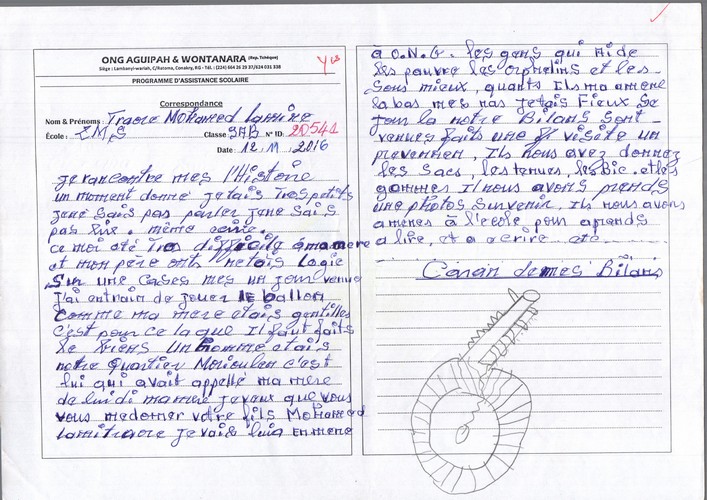 ONG AGUIPAH & WONTANARA (Rep, Tchèque)
Siège : Lambanyi-wariah, C/Ratoma, Conakry, RG - Tél. : (224) 664 26 29 37/624 031 338
PROGRAMME D'ASSISTANCE SCOLAIRE
Correspondance
Nom & Prénoms : Traore Mohamed Lamine
École : EMS Classe 3AB N° ID: 20541
Date : 12, 11, 2016
je rancontre mes l'Histoire
un moment donné jetais Tres petits
jene sais pas parler jene sais
pas lire. même ecrire.
ce moi été Tres difficile amamere
et mon père onts netais logie
Sur une cases mes un jour venue
J'ai entrain de jouer le ballon
Comme ma mere etais gentilles
C'est pour ce la que Il faut faits
le biens un homme etais
notre Quartier Morioulen c'est
lui qui avait appellé ma mere
de luidi mamere jevaux que vous
vous medonner votre fils Mohamed
lamitraore jevais luia emmené
à O.N.G. les gens qui Aide
les pauvre les orphelins et les
Sons mieux, quants Ils ma amené
la bas mes nas jetais Fieux Se
jour la notre Bilans Sont
venues faits une visite un
prevennen, Ils nous avez donnez
les Sacs, les tenues, les bic. et les
gommes Il nous avons prends
une photos Survenir. Ils nous avons
amenes à l'ecole pour aprends
a lire, et a ecrire etc
Coran de mes Bilans